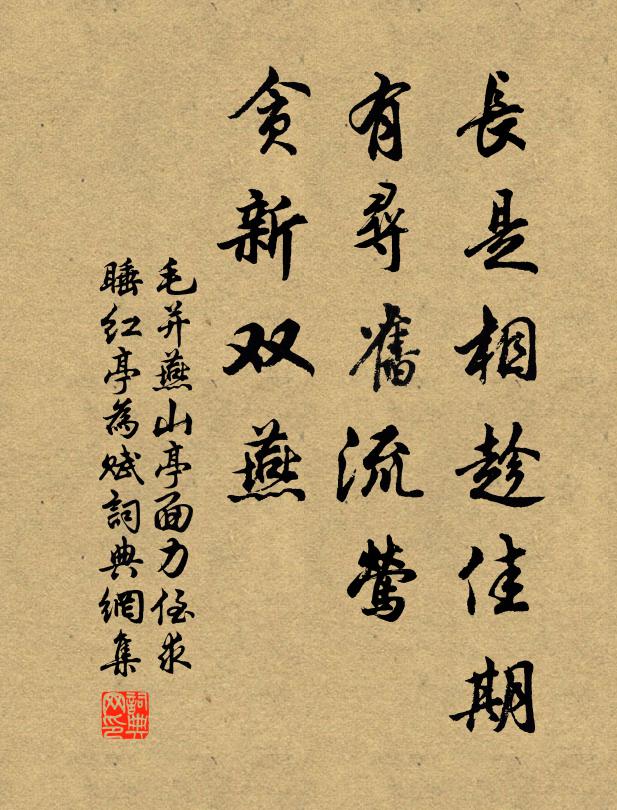 長是相趁佳期
有尋舊流鶯
貪新双燕
毛并燕山亭面力侄求
睡红亭為赋詞典網集
詞典
网印